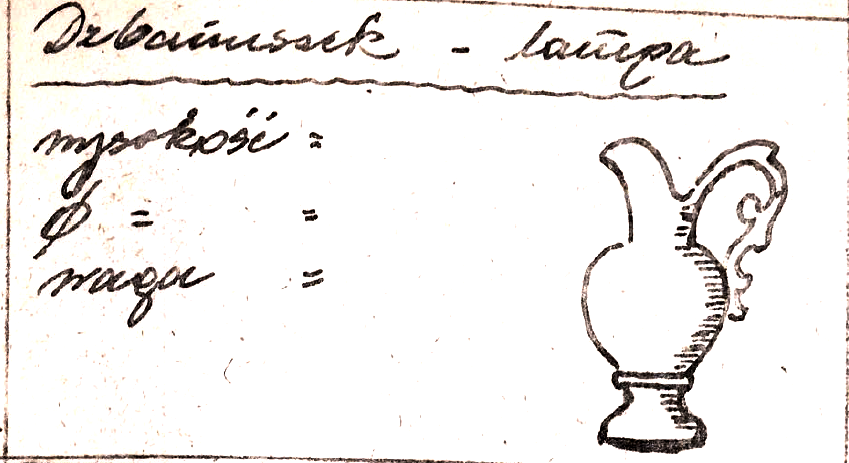 Dzbanuszek - lampa
wysokość =
φ = =
waga =